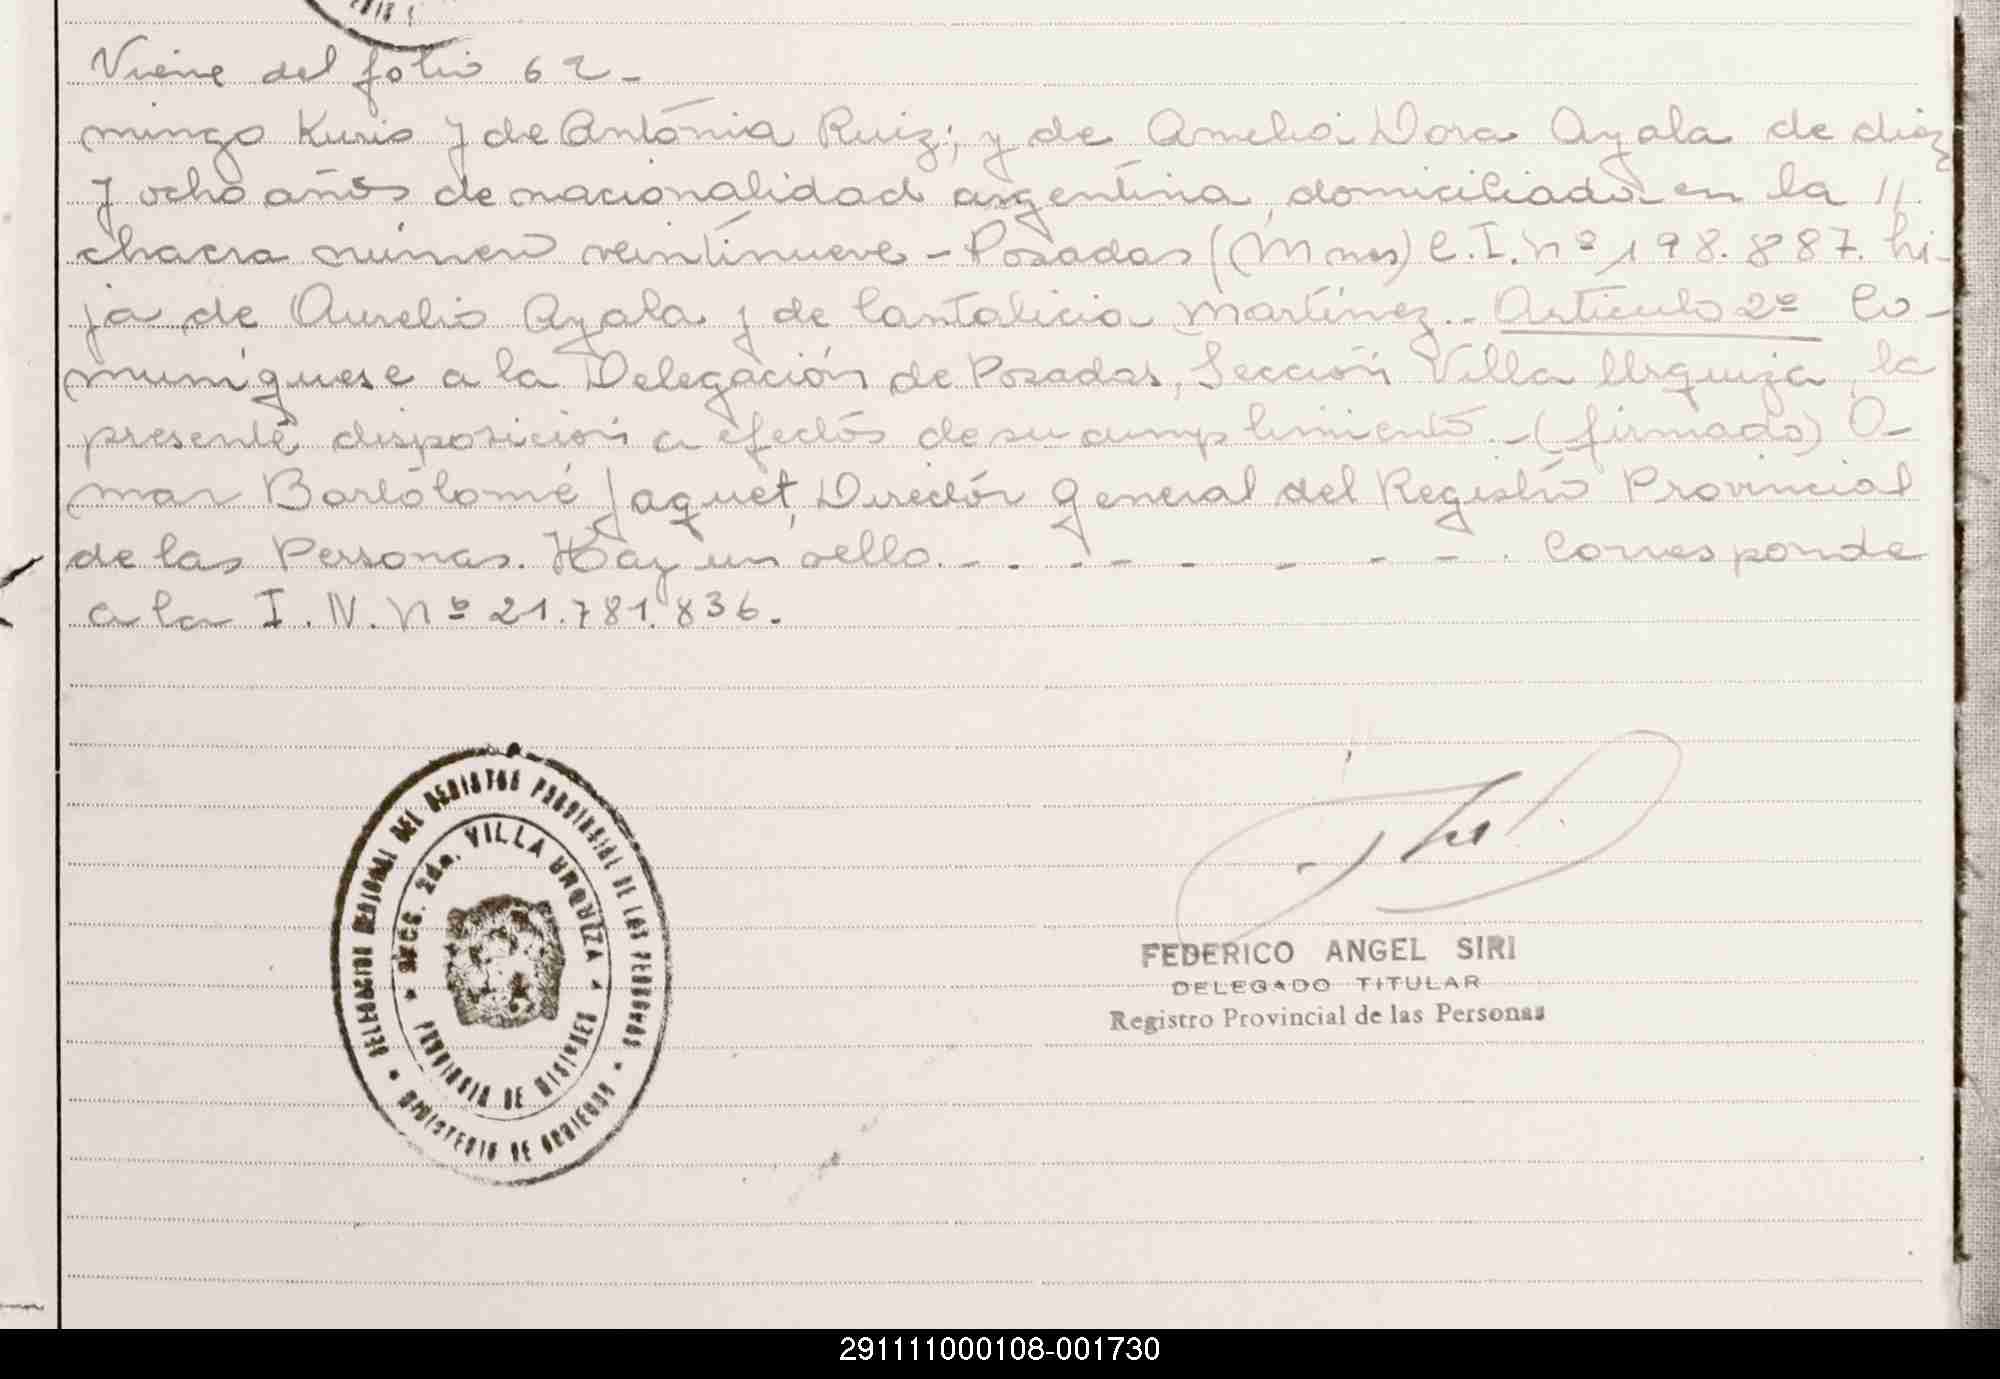 Viene del folio 62-
mingo Kuris y de Antonia Ruiz; y de Amelia Dora Ayala de diez
y ocho años de nacionalidad argentina, domiciliada en la //
chacra número veintinueve - Posadas (Mnes) C.I. Nº 198.887. hi-
ja de Aurelio Ayala y de Cantalicia Martínez.- Artículo 2º Co-
muníquese a la Delegación de Posadas, Sección Villa Urquiza, la
presente disposición a efectos de su cumplimiento.-(firmado) O-
mar Bartolomé Jaquet, Director General del Registro Provincial
de las Personas. Hay un sello. - . - - - - - - . Corresponde
a la I.N. Nº 21.781.836.
DELEGACION REGIONAL DEL REGISTRO PROVINCIAL DE LAS PERSONAS
SECC. 2da. VILLA URQUIZA
PROVINCIA DE MISIONES
MINISTERIO DE GOBIERNO
FEDERICO ANGEL SIRI
DELEGADO TITULAR
Registro Provincial de las Personas
291111000108-001730